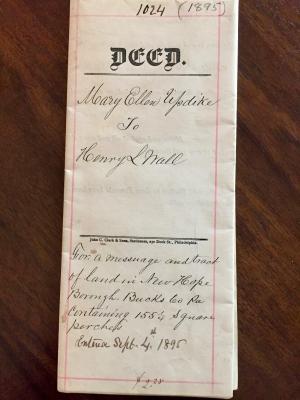 1024 (1895)
DEED.
Mary Ellen Updike
To
Henry L Wall
John C. Clark & Sons, Stationers, 230 Dock St., Philadelphia.
For a messuage and tract
of land in New Hope
Borough Bucks Co Pa
Containing 155¼ Square
perches
Entered Sept. 4th 1895
$2.25